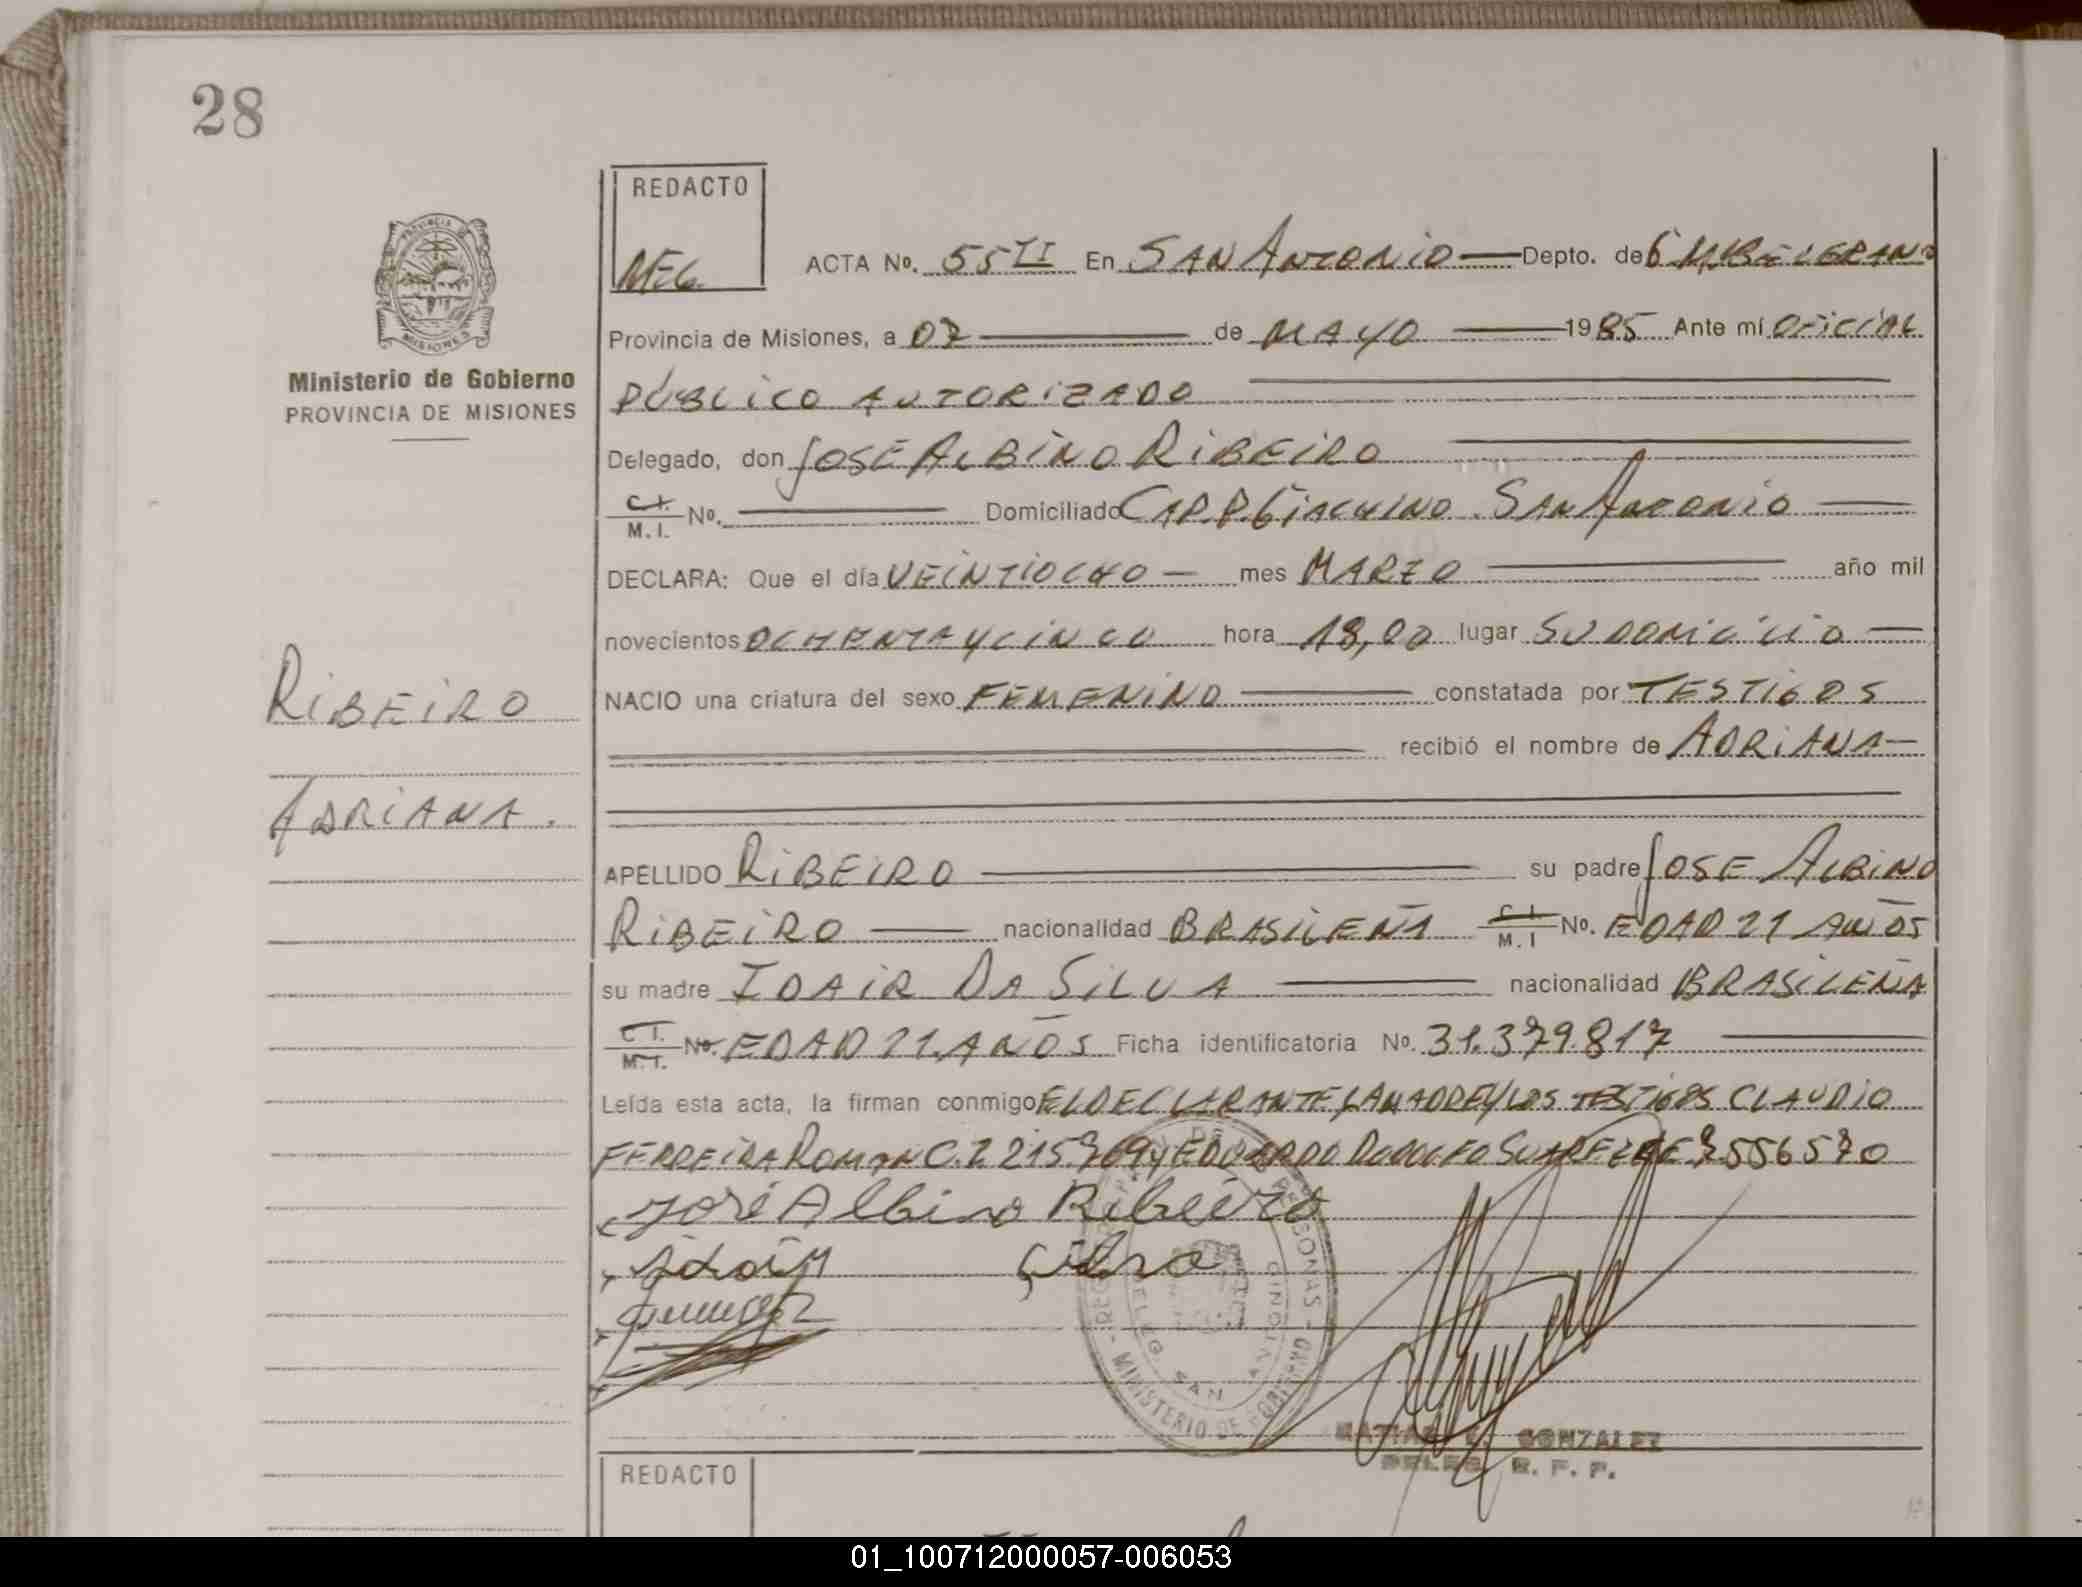 28
REDACTO
MEG.
ACTA No. 55 II En SAN ANTONIO Depto. de G M BELGRANO
Provincia de Misiones, a 07 de MAYO 1985 Ante mí OFICIAL
PÚBLICO AUTORIZADO
Delegado, don JOSE ALBINO RIBEIRO
C.I. M.I. No. Domiciliado CAP. P. GIACHINO SAN ANTONIO
DECLARA: Que el día VEINTIOCHO mes MARZO año mil
novecientos OCHENTA Y CINCO hora 18,00 lugar SU DOMICILIO
NACIO una criatura del sexo FEMENINO constatada por TESTIGOS
recibió el nombre de ADRIANA
APELLIDO RIBEIRO su padre JOSE ALBINO
RIBEIRO nacionalidad BRASILEÑA C.I. M.I No. EDAD 21 AÑOS
su madre IDAIR DA SILVA nacionalidad BRASILEÑA
C.I. M.I. No. EDAD 21 AÑOS Ficha identificatoria No. 31.379.817
Leída esta acta, la firman conmigo EL DECLARANTE, LA MADRE Y LOS TESTIGOS CLAUDIO
FERREIRA ROMAN C.I 215.709 y EDUARDO RODOLFO SUAREZ 7.556570
José Albino Ribeiro
Idair Silva
PROVINCIA DE MISIONES
Ministerio de Gobierno
PROVINCIA DE MISIONES
RIBEIRO
ADRIANA.
MINISTERIO DE GOBIERNO
DELEG. SAN ANTONIO
MATIAS E. GONZALEZ
DELEG. R. P. P.
REDACTO
01_100712000057-006053